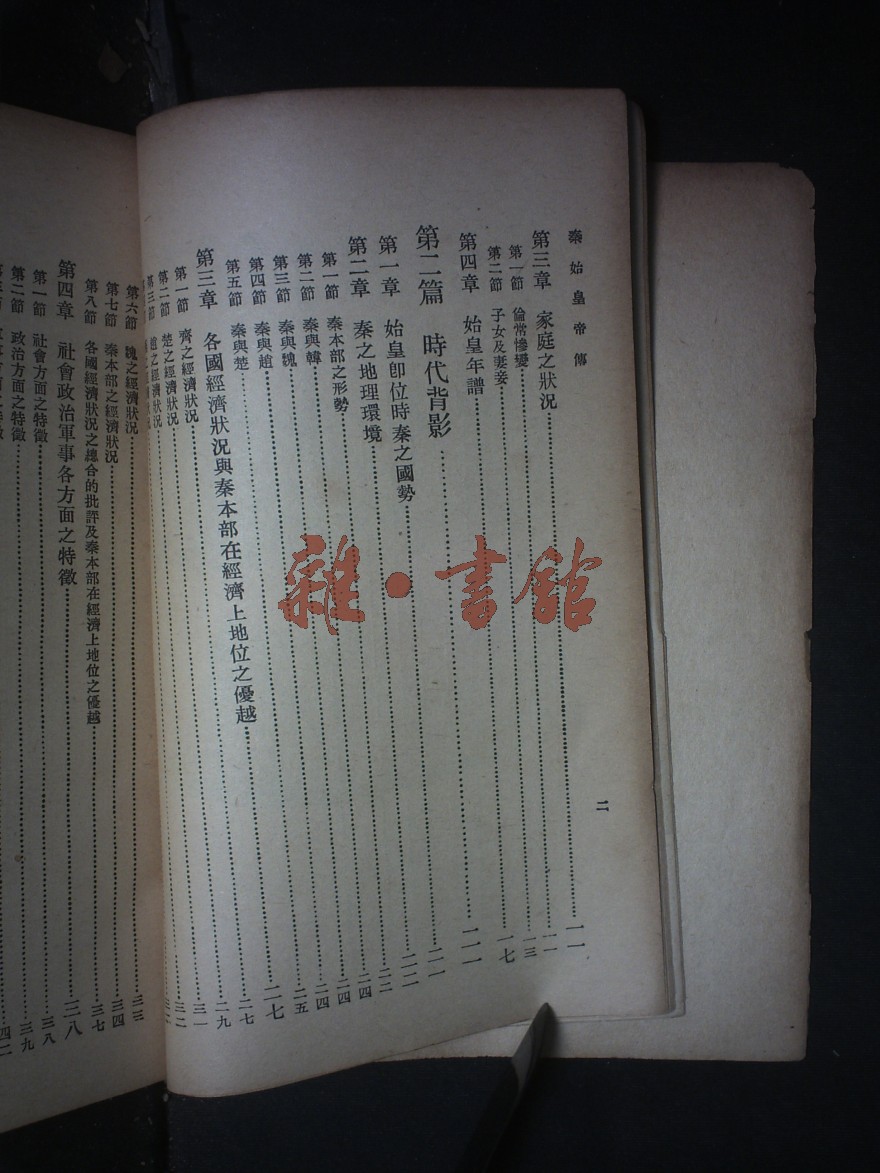 秦始皇帝傳
二
第三章 家庭之狀況……一一
第一節 倫常慘變……一一
第二節 子女及妻妾……一三
第四章 始皇年譜……一七
第二篇 時代背影……二一
第一章 始皇卽位時秦之國勢……二一
第二章 秦之地理環境……二二
第一節 秦本部之形勢……二二
第二節 秦與韓……二四
第三節 秦與魏……二四
第四節 秦與趙……二四
第五節 秦與楚……二五
第三章 各國經濟狀況與秦本部在經濟上地位之優越……二七
第一節 齊之經濟狀況……二七
第二節 楚之經濟狀況……二九
第三節 趙之經濟狀況……三一
之經濟狀況
第六節 魏之經濟狀況……三三
第七節 秦本部之經濟狀況……三四
第八節 各國經濟狀況之總合的批評及秦本部在經濟上地位之優越……三七
第四章 社會政治軍事各方面之特徵……三八
第一節 社會方面之特徵……三八
第二節 政治方面之特徵……三九
雜・書館